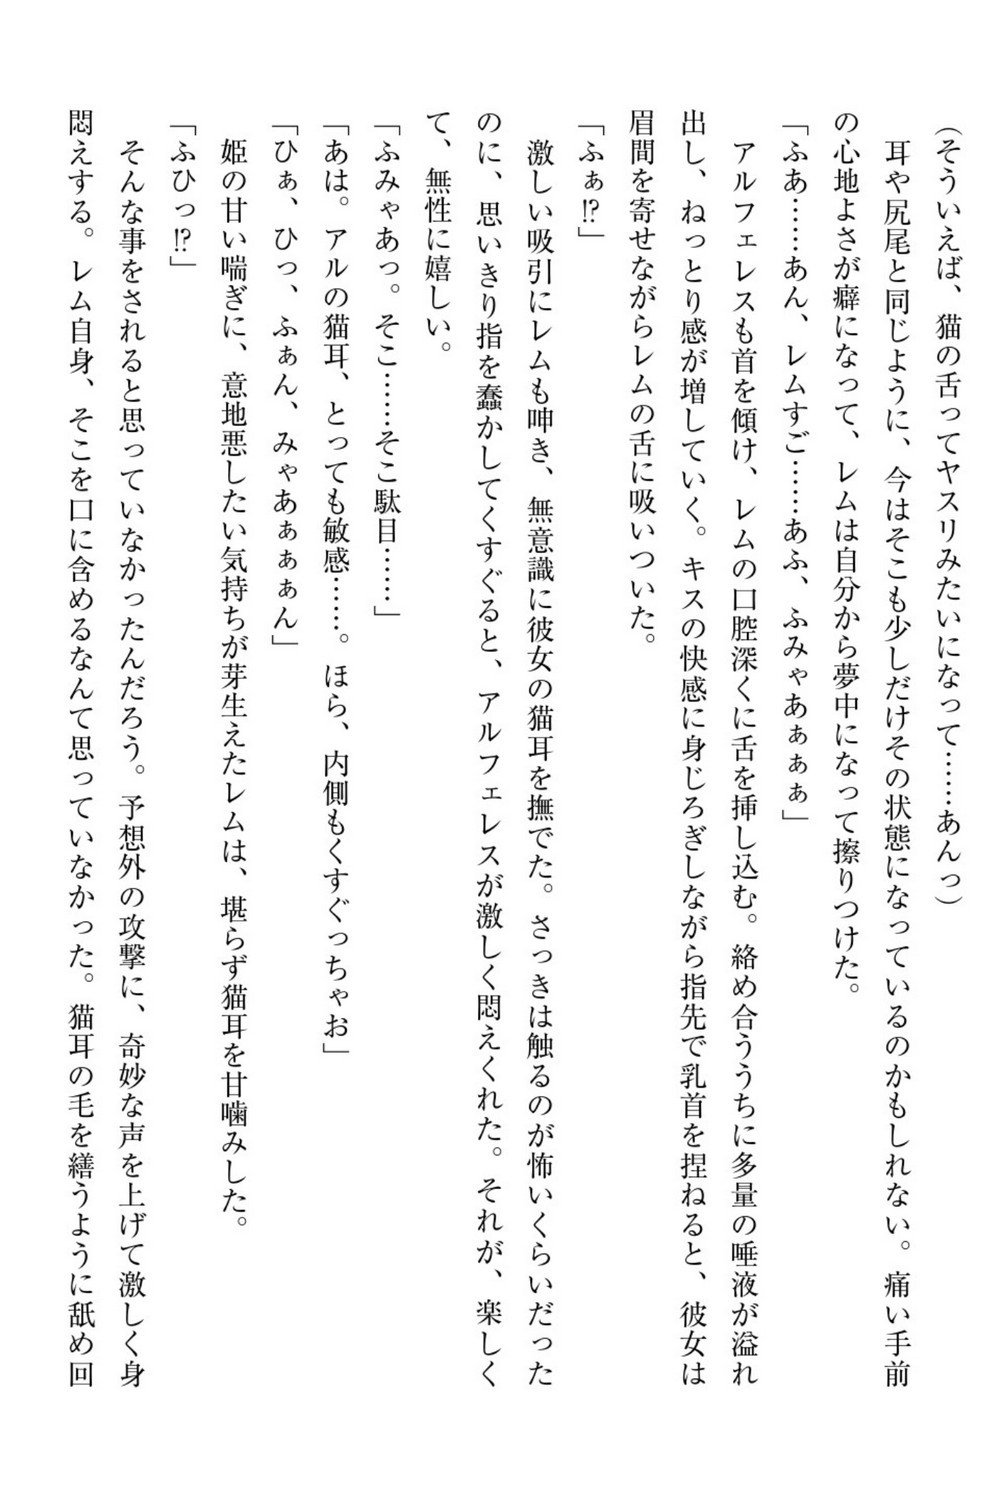 （そういえば、猫の舌ってヤスリみたいになって……あんっ）
　耳や尻尾と同じように、今はそこも少しだけその状態になっているのかもしれない。痛い手前
の心地よさが癖になって、レムは自分から夢中になって擦りつけた。
「ふあ……あん、レムすご……あふ、ふみゃあぁぁぁ」
　アルフェレスも首を傾け、レムの口腔深くに舌を挿し込む。絡め合ううちに多量の唾液が溢れ
出し、ねっとり感が増していく。キスの快感に身じろぎしながら指先で乳首を捏ねると、彼女は
眉間を寄せながらレムの舌に吸いついた。
「ふぁ⁉」
　激しい吸引にレムも呻き、無意識に彼女の猫耳を撫でた。さっきは触るのが怖いくらいだった
のに、思いきり指を蠢かしてくすぐると、アルフェレスが激しく悶えくれた。それが、楽しく
て、無性に嬉しい。
「ふみゃあっ。そこ……そこ駄目……」
「あは。アルの猫耳、とっても敏感……。ほら、内側もくすぐっちゃお」
「ひぁ、ひっ、ふぁん、みゃあぁぁぁん」
　姫の甘い喘ぎに、意地悪したい気持ちが芽生えたレムは、堪らず猫耳を甘噛みした。
「ふひっ⁉」
　そんな事をされると思っていなかったんだろう。予想外の攻撃に、奇妙な声を上げて激しく身
悶えする。レム自身、そこを口に含めるなんて思っていなかった。猫耳の毛を繕うように舐め回